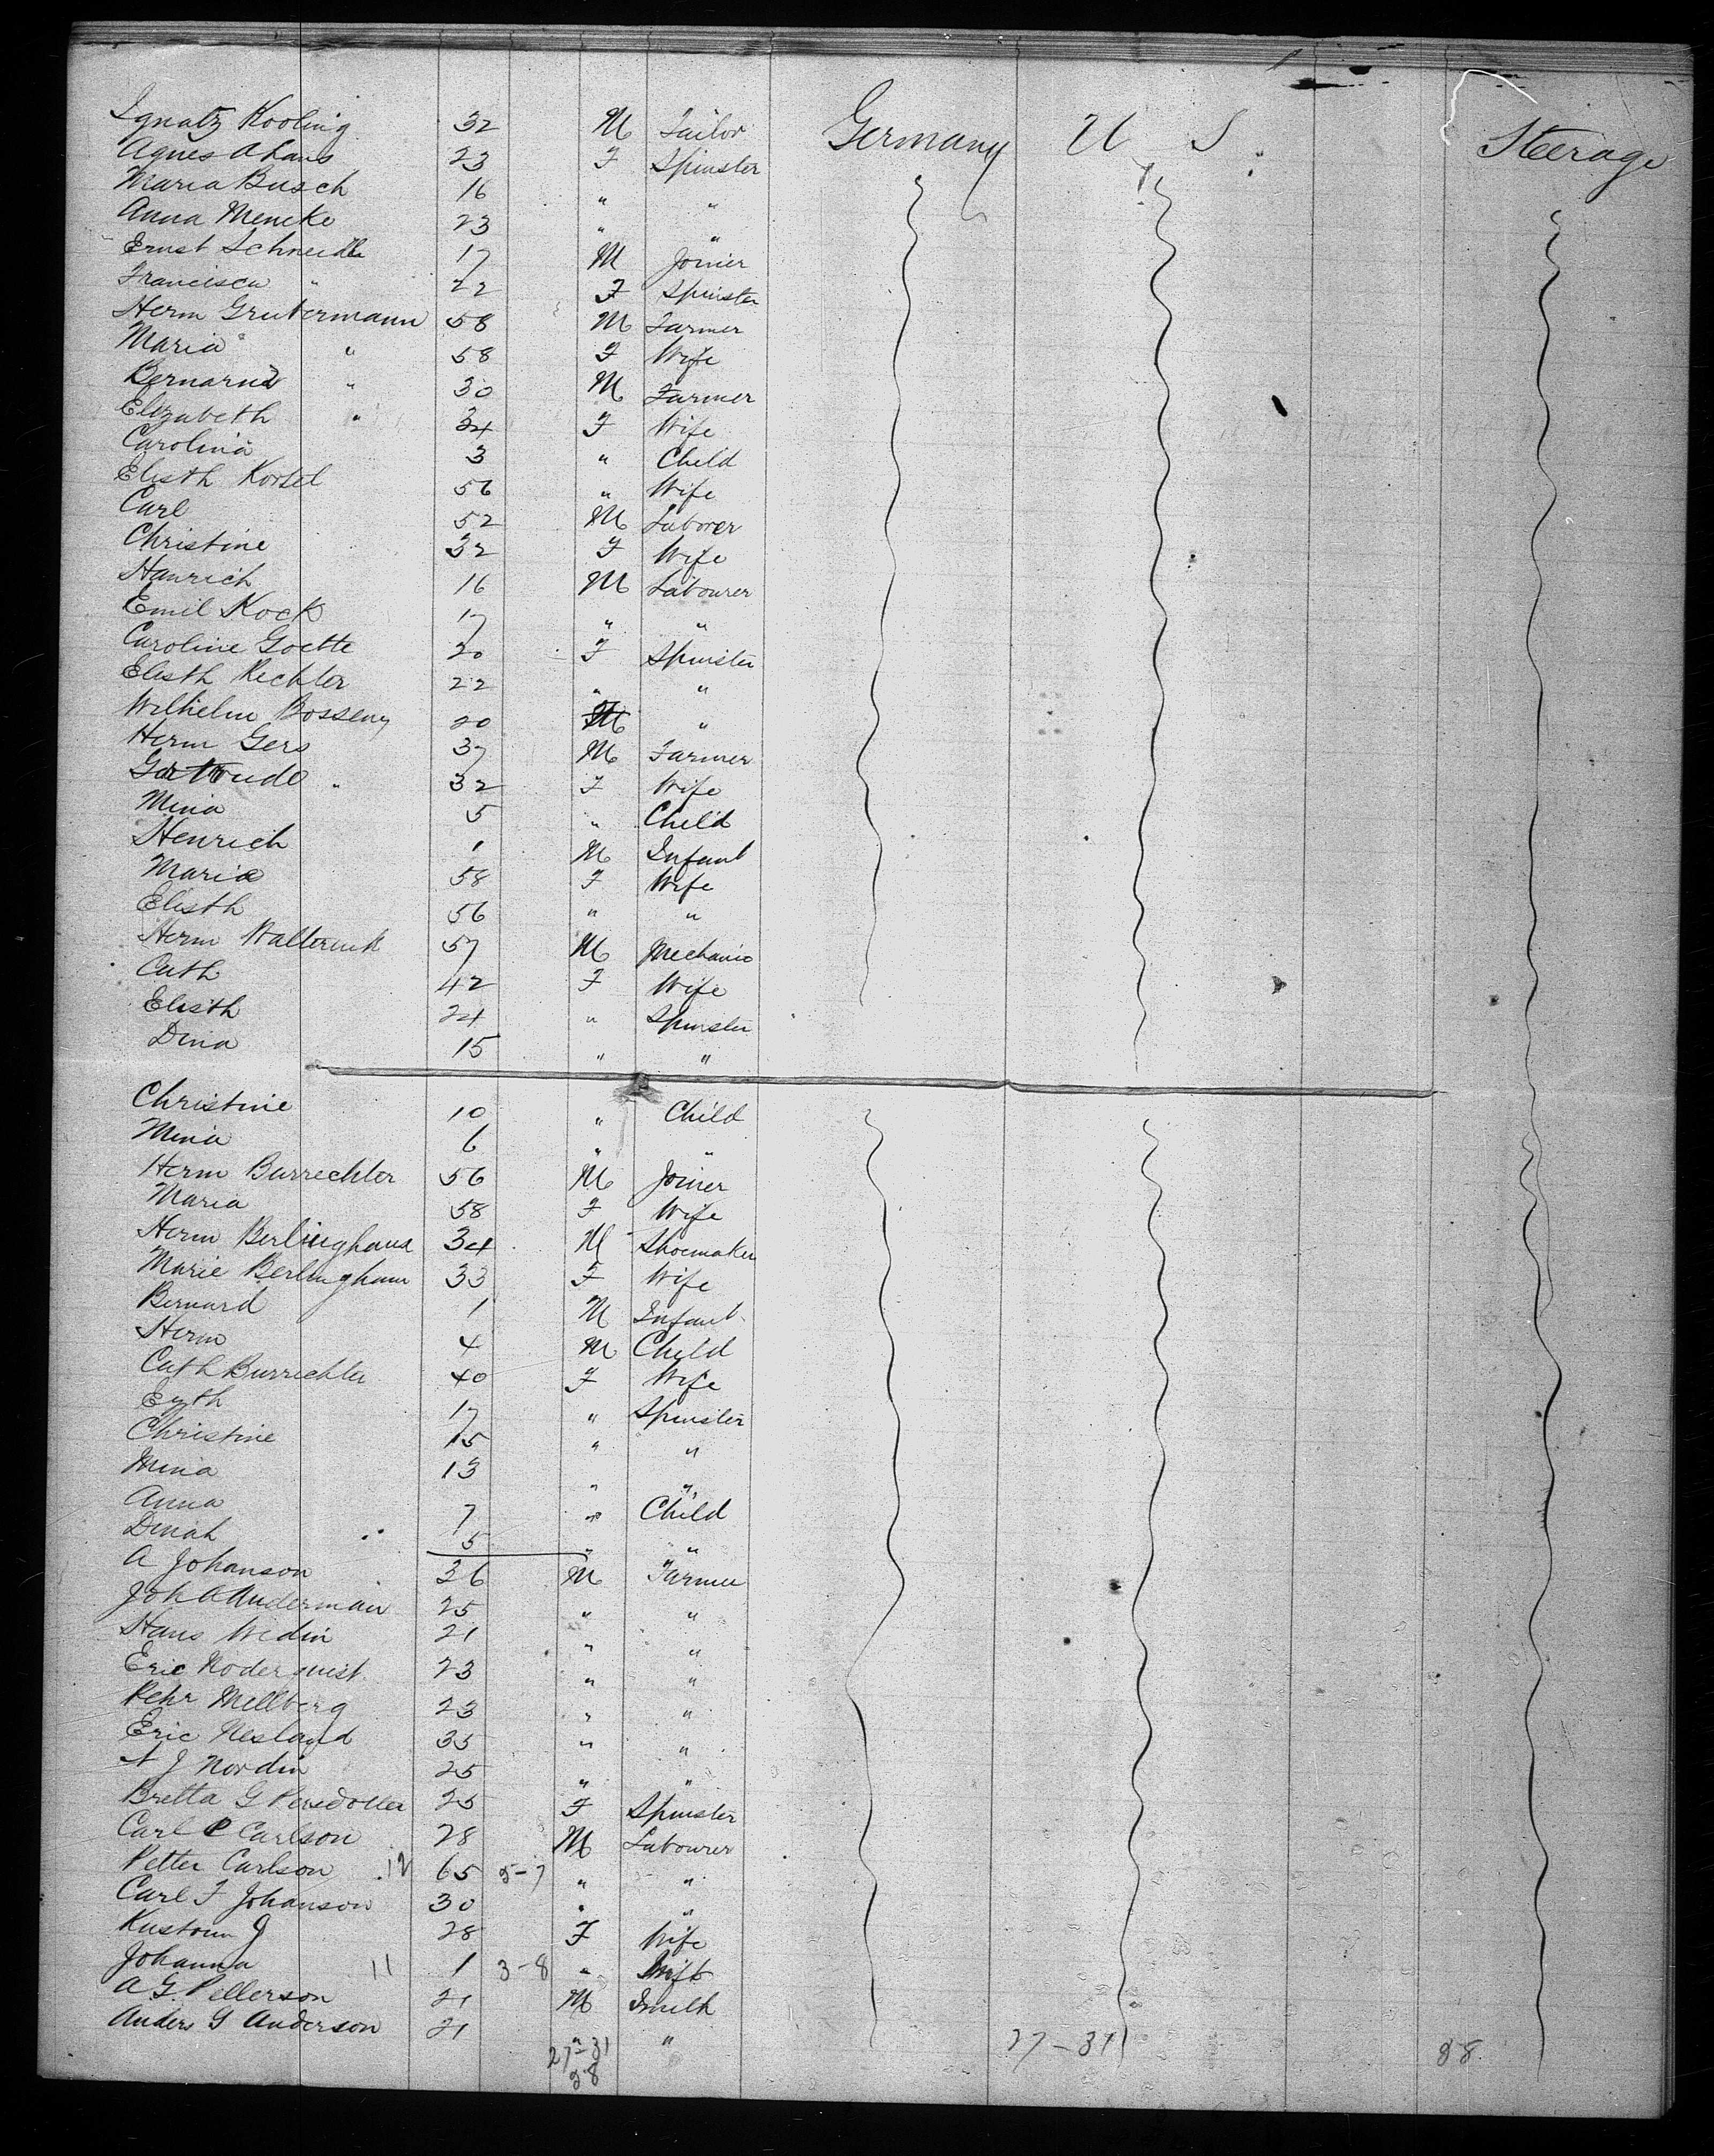 Ignatz Kooling 32 M Tailor Germany U S Steerage
Agnes Ahaus 23 F Spinster
Maria Busch 16 " "
Anna Mencke 23 " "
Ernst Schneidle 17 M Joiner
Francisca " 22 F Spinster
Herm Grutermann 58 M Farmer
Maria " 58 F Wife
Bernard " 30 M Farmer
Elizabeth " 34 F Wife
Carolina 3 " Child
Elisth Korsel 56 " Wife
Carl 52 M Laborer
Christine 32 F Wife
Hanrich 16 M Labourer
Emil Kock 17 " "
Caroline Goette 20 F Spinster
Elisth Rechter 22 " "
Wilhelm 20 M "
Herm Gers 37 M Farmer
Gertrude " 32 F Wife
Mina 5 " Child
Henrich 1 M Infant
Maria 58 F Wife
Elisth 56 " "
Herm 57 M Mechanic
Cath 42 F Wife
Elisth 24 " Spinster
Dina 15 " "
Christine 10 " Child
Mina 6 " "
Herm Burrechter 56 M Joiner
Maria 58 F Wife
Herm Berlinghaus 34 M Shoemaker
Marie Berlingham 33 F Wife
Bernard 1 M Infant
Herm 4 M Child
Cath Burrechter 40 F Wife
17 " Spinster
Christine 15 " "
Mina 13 " "
Anna 7 " Child
Dinah 5 " "
A Johanson 36 M Farmer
Joh A Anderman 25 " "
Hans Wedin 21 " "
Eric Noderquist 23 " "
Pehr Millberg 23 " "
Eric Nesland 35 " "
A J Nordin 25 " "
Bretta G 25 F Spinster
Carl P Carlson 28 M Labourer
Petter Carlson 12 65 5-7 " "
Carl F Johanson 30 " "
J 28 F Wife
Johanna 11 1 3-8 "
A G Pellerson 21 M Smith
Anders G Anderson 21 " "
27-31 27-31 88
58